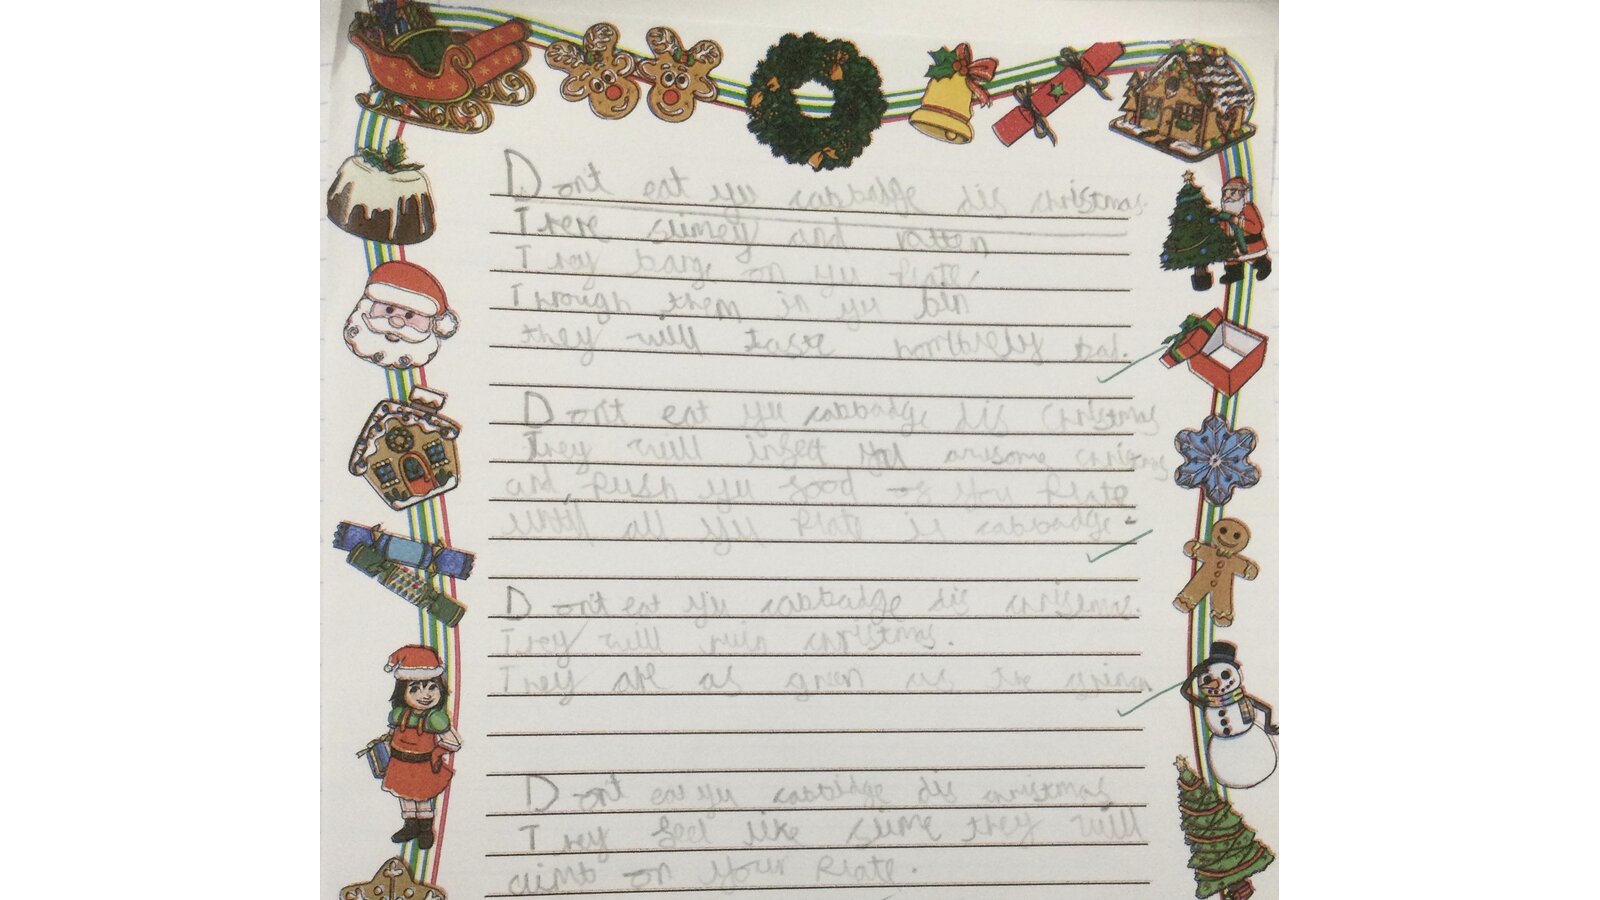 Don't eat yu cabbage this christmas.
There slimey and rotten
They bang on yu plate,
Through them in yu bin
they will taste horribley bad.
Don't eat yu cabbage this Christmas
They will infect you
and push yu food of you plate
untill all yu plate is cabbadge.
Don't eat yu cabbadge this christmas.
They will ruin christmas.
They are as green as the grinch
Don't eat yu cabbidge this christmas
They feel like slime they will
on your plate.